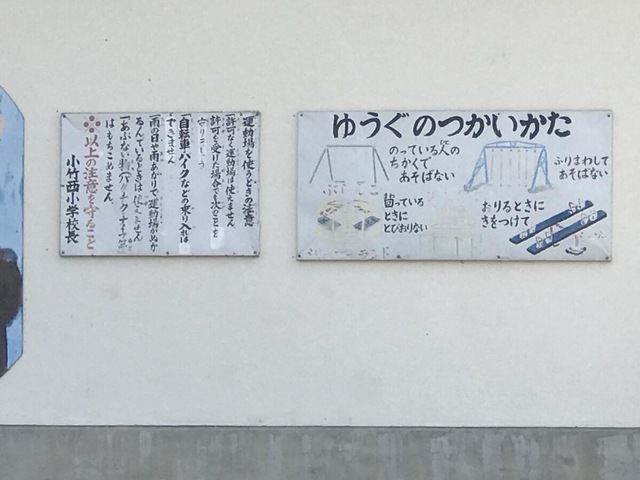 運動場を使うときの注意
一許可なく運動場は使えません
許可を受けた場合でも次のことを
守りましょう
一自転車バイクなどの乗り入れは
できません
一雨の日や雨あがりで運動場がぬか
るんでいるときは使えません
一あぶない物
はもちこめません
以上の注意を守ること
小竹西小学校長
ゆうぐのつかいかた
のっている人の
ちかくで
あそばない
ふりまわして
あそばない
ぶらんこ
回っている
ときに
とびおりない
おりるときに
きをつけて